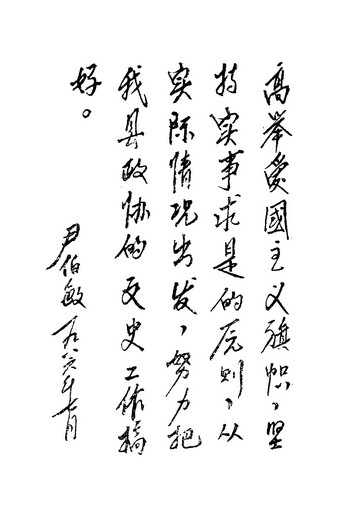 高举爱國主义旗帜，坚
持实事求是的原则，从
实际情况出发，努力把
我县政协的文史工作搞
好。
尹伯敏 一九八六年七月